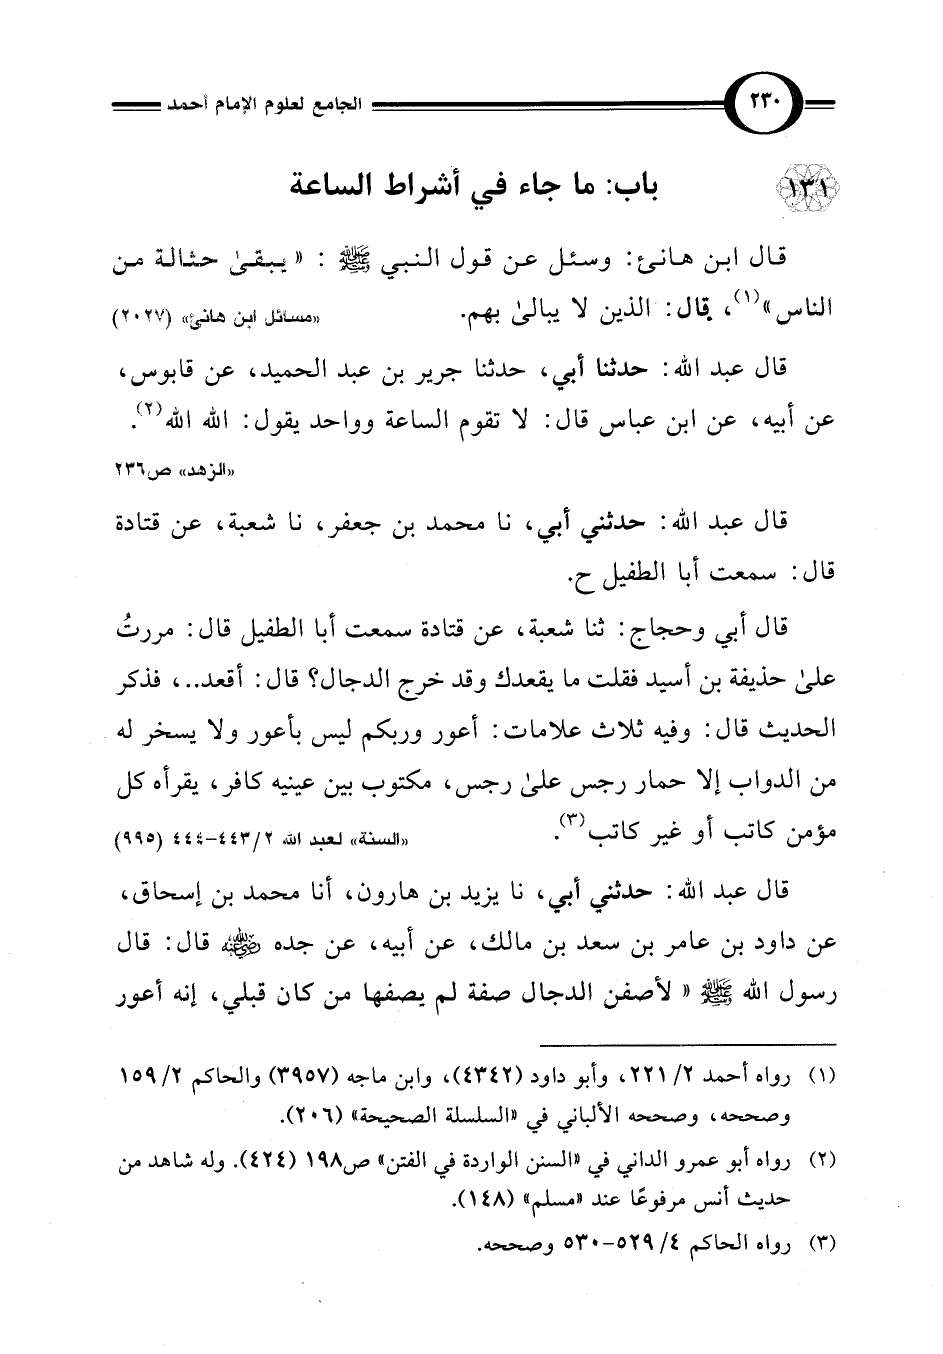 ٢٣٠ الجامع لعلوم الإمام أحمد
١٣١ باب: ما جاء في أشراط الساعة
قال ابن هانئ: وسئل عن قول النبي ﷺ : « يبقىٰ حثالة من
الناس»(١)، قال: الذين لا يبالىٰ بهم. «مسائل ابن هانئ» (٢٠٢٧)
قال عبد الله: حدثنا أبي، حدثنا جرير بن عبد الحميد، عن قابوس،
عن أبيه، عن ابن عباس قال: لا تقوم الساعة وواحد يقول: الله الله(٢).
«الزهد» ص٢٣٦
قال عبد الله: حدثني أبي، نا محمد بن جعفر، نا شعبة، عن قتادة
قال: سمعت أبا الطفيل ح.
قال أبي وحجاج: ثنا شعبة، عن قتادة سمعت أبا الطفيل قال: مررتُ
علىٰ حذيفة بن أسيد فقلت ما يقعدك وقد خرج الدجال؟ قال: أقعد..، فذكر
الحديث قال: وفيه ثلاث علامات: أعور وربكم ليس بأعور ولا يسخر له
من الدواب إلا حمار رجس علىٰ رجس، مكتوب بين عينيه كافر، يقرأه كل
مؤمن كاتب أو غير كاتب(٣). «السنة» لعبد الله ٢/ ٤٤٣-٤٤٤ (٩٩٥)
قال عبد الله: حدثني أبي، نا يزيد بن هارون، أنا محمد بن إسحاق،
عن داود بن عامر بن سعد بن مالك، عن أبيه، عن جده رضي الله عنه قال: قال
رسول الله ﷺ « لأصفن الدجال صفة لم يصفها من كان قبلي، إنه أعور
(١) رواه أحمد ٢/ ٢٢١، وأبو داود (٤٣٤٢)، وابن ماجه (٣٩٥٧) والحاكم ٢/ ١٥٩
وصححه، وصححه الألباني في «السلسلة الصحيحة» (٢٠٦).
(٢) رواه أبو عمرو الداني في «السنن الواردة في الفتن» ص١٩٨ (٤٢٤). وله شاهد من
حديث أنس مرفوعًا عند «مسلم» (١٤٨).
(٣) رواه الحاكم ٤/ ٥٢٩-٥٣٠ وصححه.